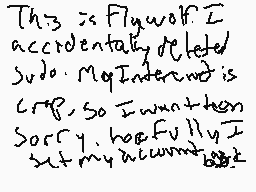 This is Flywolf. I
accidentally deleted
Sudo. My Internet is
crap, so I wun't hen
Sorry. hopefully I
get my account back